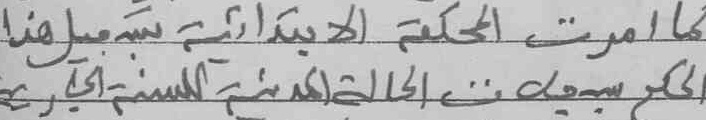 كما امرت المحكمة الابتدائية بتسجيل هذا
الحكم بسجلات الحالة المدنية للسنة الجارية